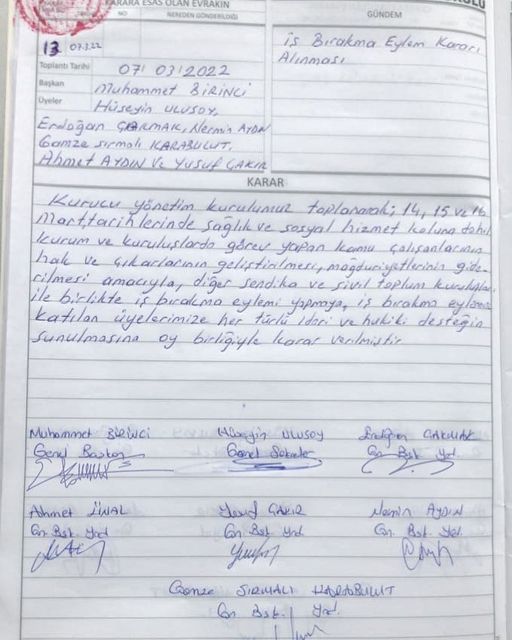 KARARA ESAS OLAN EVRAKIN
NO NEREDEN GÖNDERİLDİĞİ
GÜNDEM
13 07.3.22
Toplantı Tarihi 07/03/2022
Başkan Muhammet BİRİNCİ
Üyeler Hüseyin ULUSOY,
Erdoğan ÇAKMAK, Nermin AYDIN
Gamze sırmalı KARABULUT,
Ahmet AYDIN Ve Yusuf ÇAKIR
iş Bırakma Eylem Kararı
Alınması
KARAR
Kurucu yönetim kurulumuz toplanarak; 14, 15 ve 16
Mart tarihlerinde sağlık ve sosyal hizmet koluna dahil
kurum ve kuruluşlarda görev yapan kamu çalışanlarının
hak ve çıkarlarının geliştirilmesi, mağduriyetlerinin gide-
rilmesi amacıyla, diğer sendika ve sivil toplum kuruluşları
ile birlikte iş bırakma eylemi yapmaya, iş bırakma eylemine
katılan üyelerimize her türlü idari ve hukiki desteğin
sunulmasına oy birliğiyle karar verilmiştir
Muhammet BİRİNCİ Hüseyin ULUSOY Erdoğan ÇAKMAK
Genel Başkan Genel Sekreter Gn. Bşk. Yrd.
Ahmet ÜNAL Yusuf ÇAKIR Nermin AYDIN
Gn. Bşk. Yrd. Gn. Bşk. Yrd. Gn. Bşk. Yrd.
Gamze SIRMALI KARABULUT
Gn. Bşk. Yrd.